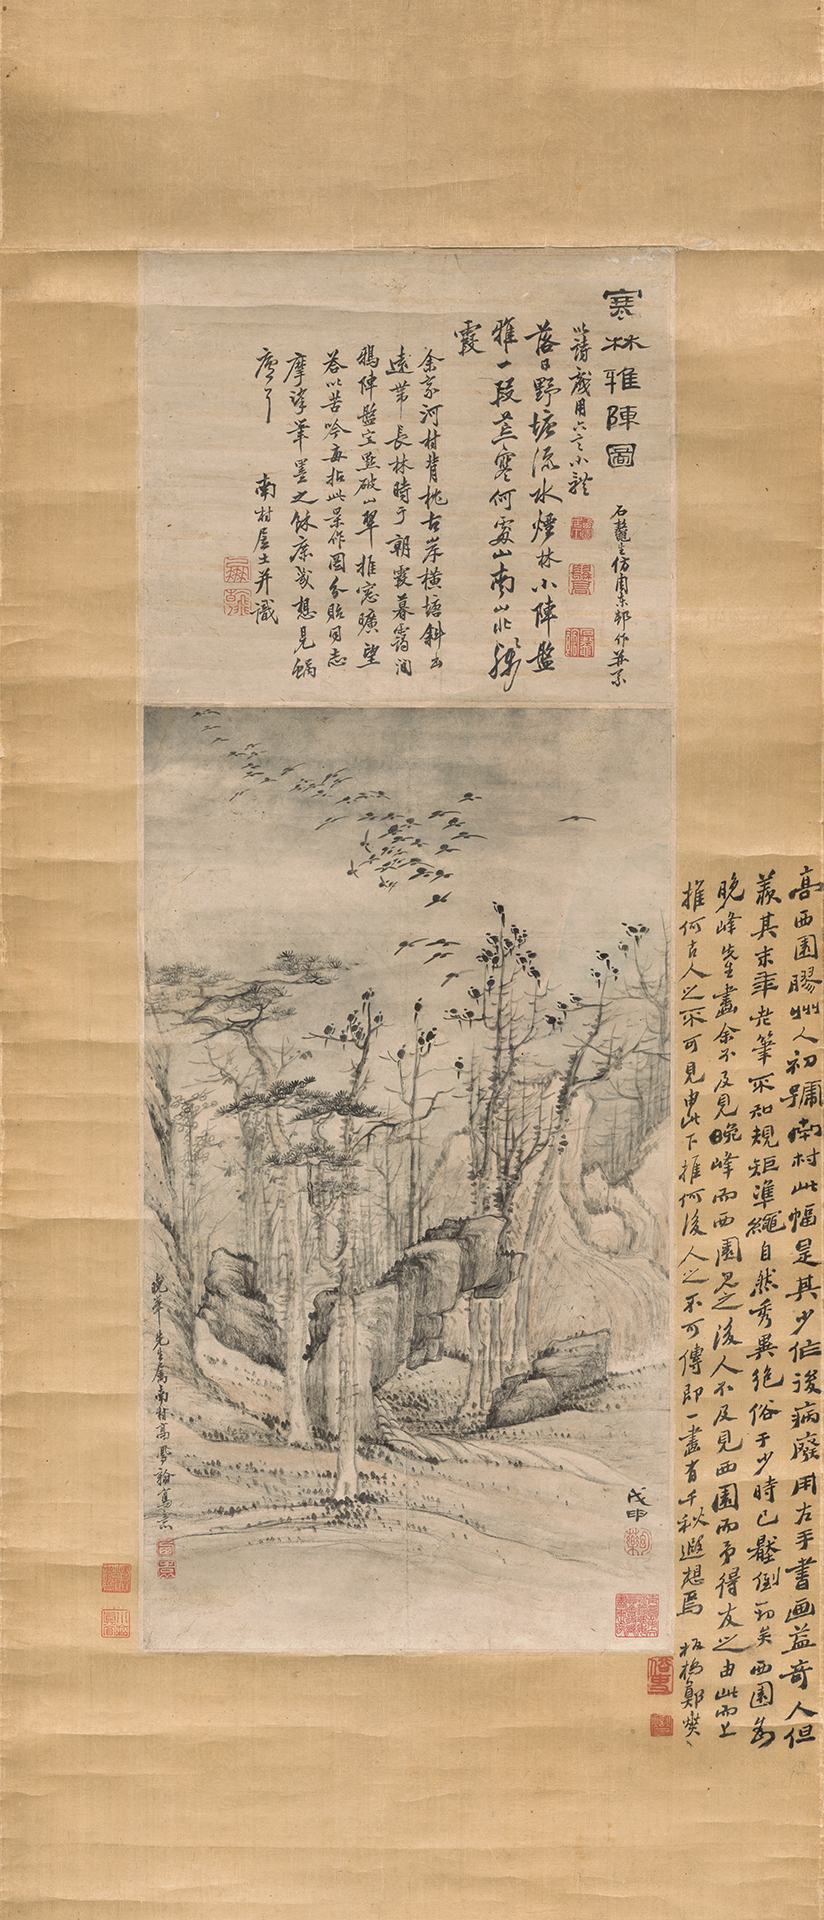 寒林雅陣圖
石鼇生仿周東邨作并系
以詩戲用六言小體
落日野塘流水煙林小陣盤
雅一段荒寒何處山南山北殘
霞
余家河村背枕古岸橫塘斜出
遠帶長林時于朝霞暮靄間
鴉陣盤空點破山翠推窓曠望
荅以苦吟每拈此景作圖分貽同志
摩挲筆墨之餘廉幾想見蝸
廬了
南村居士并識
戊申
晚峯先生屬南村高鳳翰寫意
高西園膠州人初號南村此幅是其少作後病廢用左手書画益奇人但
羨其末年老筆不知規矩準繩自然秀異絕俗于少時已壓倒一切矣西園為
晚峰先生畫余不及見晚峰而西園見之後人不及見西園而予得友之由此而上
推何古人之不可見由此下推何後人之不可傳即一畫有千秋遐想焉
板橋鄭燮